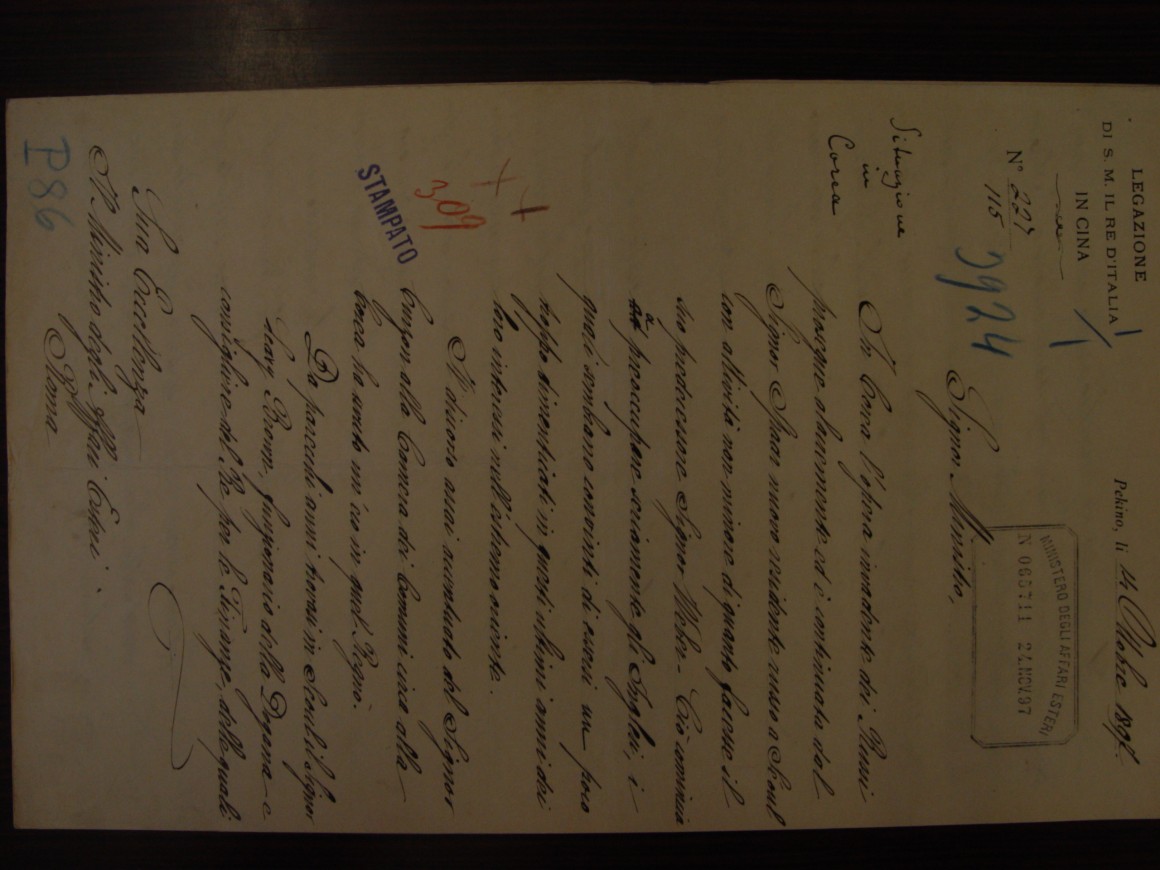 LEGAZIONE
DI S. M. IL RE D'ITALIA
IN CINA
Pekino, li 4 Ottobre 1897.
N° 227
115
3924
MINISTERO DEGLI AFFARI ESTERI
N 066711 24.NOV.97
Situazione
in
Corea
Signor Ministro,
In Corea l'opera invadente dei Russi
prosegue alacremente ed è continuata dal
Signor Speyer nuovo residente russo a Seoul
con attività non minore di quanto facesse il
suo predecessore Signor Weber - Ciò comincia
a preoccupare seriamente gli Inglesi, i
quali sembrano convinti di essersi un poco
troppo dimenticati in questi ultimi anni dei
loro interessi nell'estremo oriente.
Il discorso assai accentuato del Signor
Curzon alla Camera dei Comuni circa alla
Corea ha avuto un'eco in quel Regno.
Da parecchi anni trovasi in Seoul il Signor
Leavy Brown, funzionario della Dogana e
consigliere del Re per le Finanze, delle quali
STAMPATO
309
Sua Eccellenza
Il Ministro degli Affari Esteri.
Roma
P86